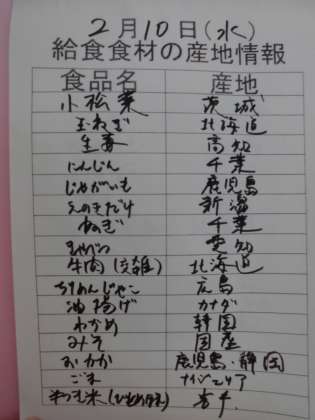 2月10日(水)
給食食材の産地情報
食品名 産地
小松菜 茨城
玉ねぎ 北海道
生姜 高知
にんじん 千葉
じゃがいも 鹿児島
えのきだけ 新潟
ねぎ 千葉
キャベツ 愛知
牛肉(交雑) 北海道
ちりめんじゃこ 広島
油揚げ カナダ
わかめ 韓国
みそ 国産
おかか 鹿児島・静岡
ごま ナイジェリア
米 岩手